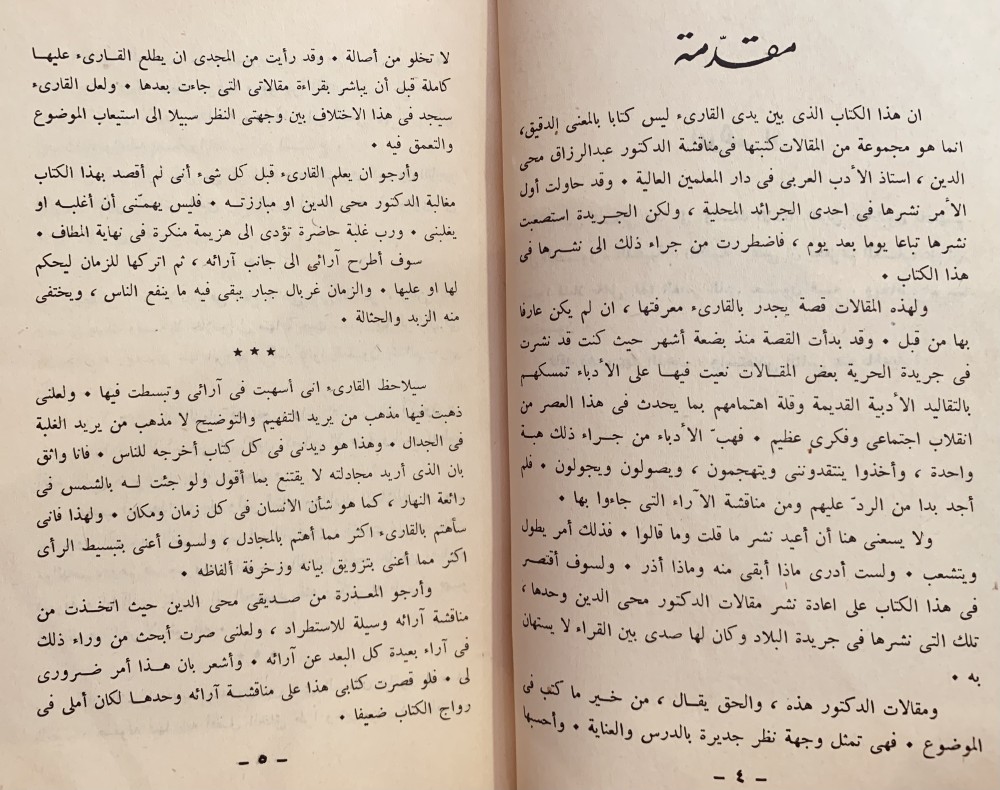 مقدّمة
ان هذا الكتاب الذى بين يدى القارىء ليس كتابا بالمعنى الدقيق،
انما هو مجموعة من المقالات كتبتها فى مناقشة الدكتور عبدالرزاق محى
الدين ، استاذ الأدب العربى فى دار المعلمين العالية • وقد حاولت أول
الأمر نشرها فى احدى الجرائد المحلية ، ولكن الجريدة استصعبت
نشرها تباعا يوما بعد يوم ، فاضطررت من جراء ذلك الى نشرها فى
هذا الكتاب •
ولهذه المقالات قصة يجدر بالقارىء معرفتها ، ان لم يكن عارفا
بها من قبل • وقد بدأت القصة منذ بضعة أشهر حيث كنت قد نشرت
فى جريدة الحرية بعض المقالات نعيت فيها على الأدباء تمسكهم
بالتقاليد الأدبية القديمة وقلة اهتمامهم بما يحدث فى هذا العصر من
انقلاب اجتماعى وفكرى عظيم • فهبّ الأدباء من جراء ذلك هبة
واحدة ، وأخذوا ينتقدوننى ويتهجمون ، ويصولون ويجولون • فلم
أجد بدا من الردّ عليهم ومن مناقشة الآراء التى جاءوا بها •
ولا يسعنى هنا أن أعيد نشر ما قلت وما قالوا • فذلك أمر يطول
ويتشعب • ولست أدرى ماذا أبقى منه وماذا أذر • ولسوف أقتصر
فى هذا الكتاب على اعادة نشر مقالات الدكتور محى الدين وحدها ،
تلك التى نشرها فى جريدة البلاد وكان لها صدى بين القراء لا يستهان
به •
ومقالات الدكتور هذه ، والحق يقال ، من خير ما كتب فى
الموضوع • فهى تمثل وجهة نظر جديرة بالدرس والعناية • وأحسبها
– ٤ –
لا تخلو من أصالة • وقد رأيت من المجدى ان يطلع القارىء عليها
كاملة قبل أن يباشر بقراءة مقالاتى التى جاءت بعدها • ولعل القارىء
سيجد فى هذا الاختلاف بين وجهتى النظر سبيلا الى استيعاب الموضوع
والتعمق فيه •
وأرجو ان يعلم القارىء قبل كل شىء أنى لم أقصد بهذا الكتاب
مغالبة الدكتور محى الدين او مبارزته • فليس يهمّنى أن أغلبه او
يغلبنى • ورب غلبة حاضرة تؤدى الى هزيمة منكرة فى نهاية المطاف •
سوف أطرح آرائى الى جانب آرائه ، ثم اتركها للزمان ليحكم
لها او عليها • والزمان غربال جبار يبقى فيه ما ينفع الناس ، ويختفى
منه الزبد والحثالة •
★★★
سيلاحظ القارىء انى أسهبت فى آرائى وتبسطت فيها • ولعلنى
ذهبت فيها مذهب من يريد التفهيم والتوضيح لا مذهب من يريد الغلبة
فى الجدال • وهذا هو ديدنى فى كل كتاب أخرجه للناس • فانا واثق
بان الذى أريد مجادلته لا يقتنع بما أقول ولو جئت له بالشمس فى
رائعة النهار ، كما هو شأن الانسان فى كل زمان ومكان • ولهذا فانى
سأهتم بالقارىء اكثر مما أهتم بالمجادل ، ولسوف أعنى بتبسيط الرأى
اكثر مما أعنى بتزويق بيانه وزخرفة ألفاظه •
وأرجو المعذرة من صديقى محى الدين حيث اتخذت من
مناقشة آرائه وسيلة للاستطراد ، ولعلنى صرت أبحث من وراء ذلك
فى آراء بعيدة كل البعد عن آرائه • وأشعر بان هذا أمر ضرورى
لى • فلو قصرت كتابى هذا على مناقشة آرائه وحدها لكان أملى فى
رواج الكتاب ضعيفا •
– ٥ –